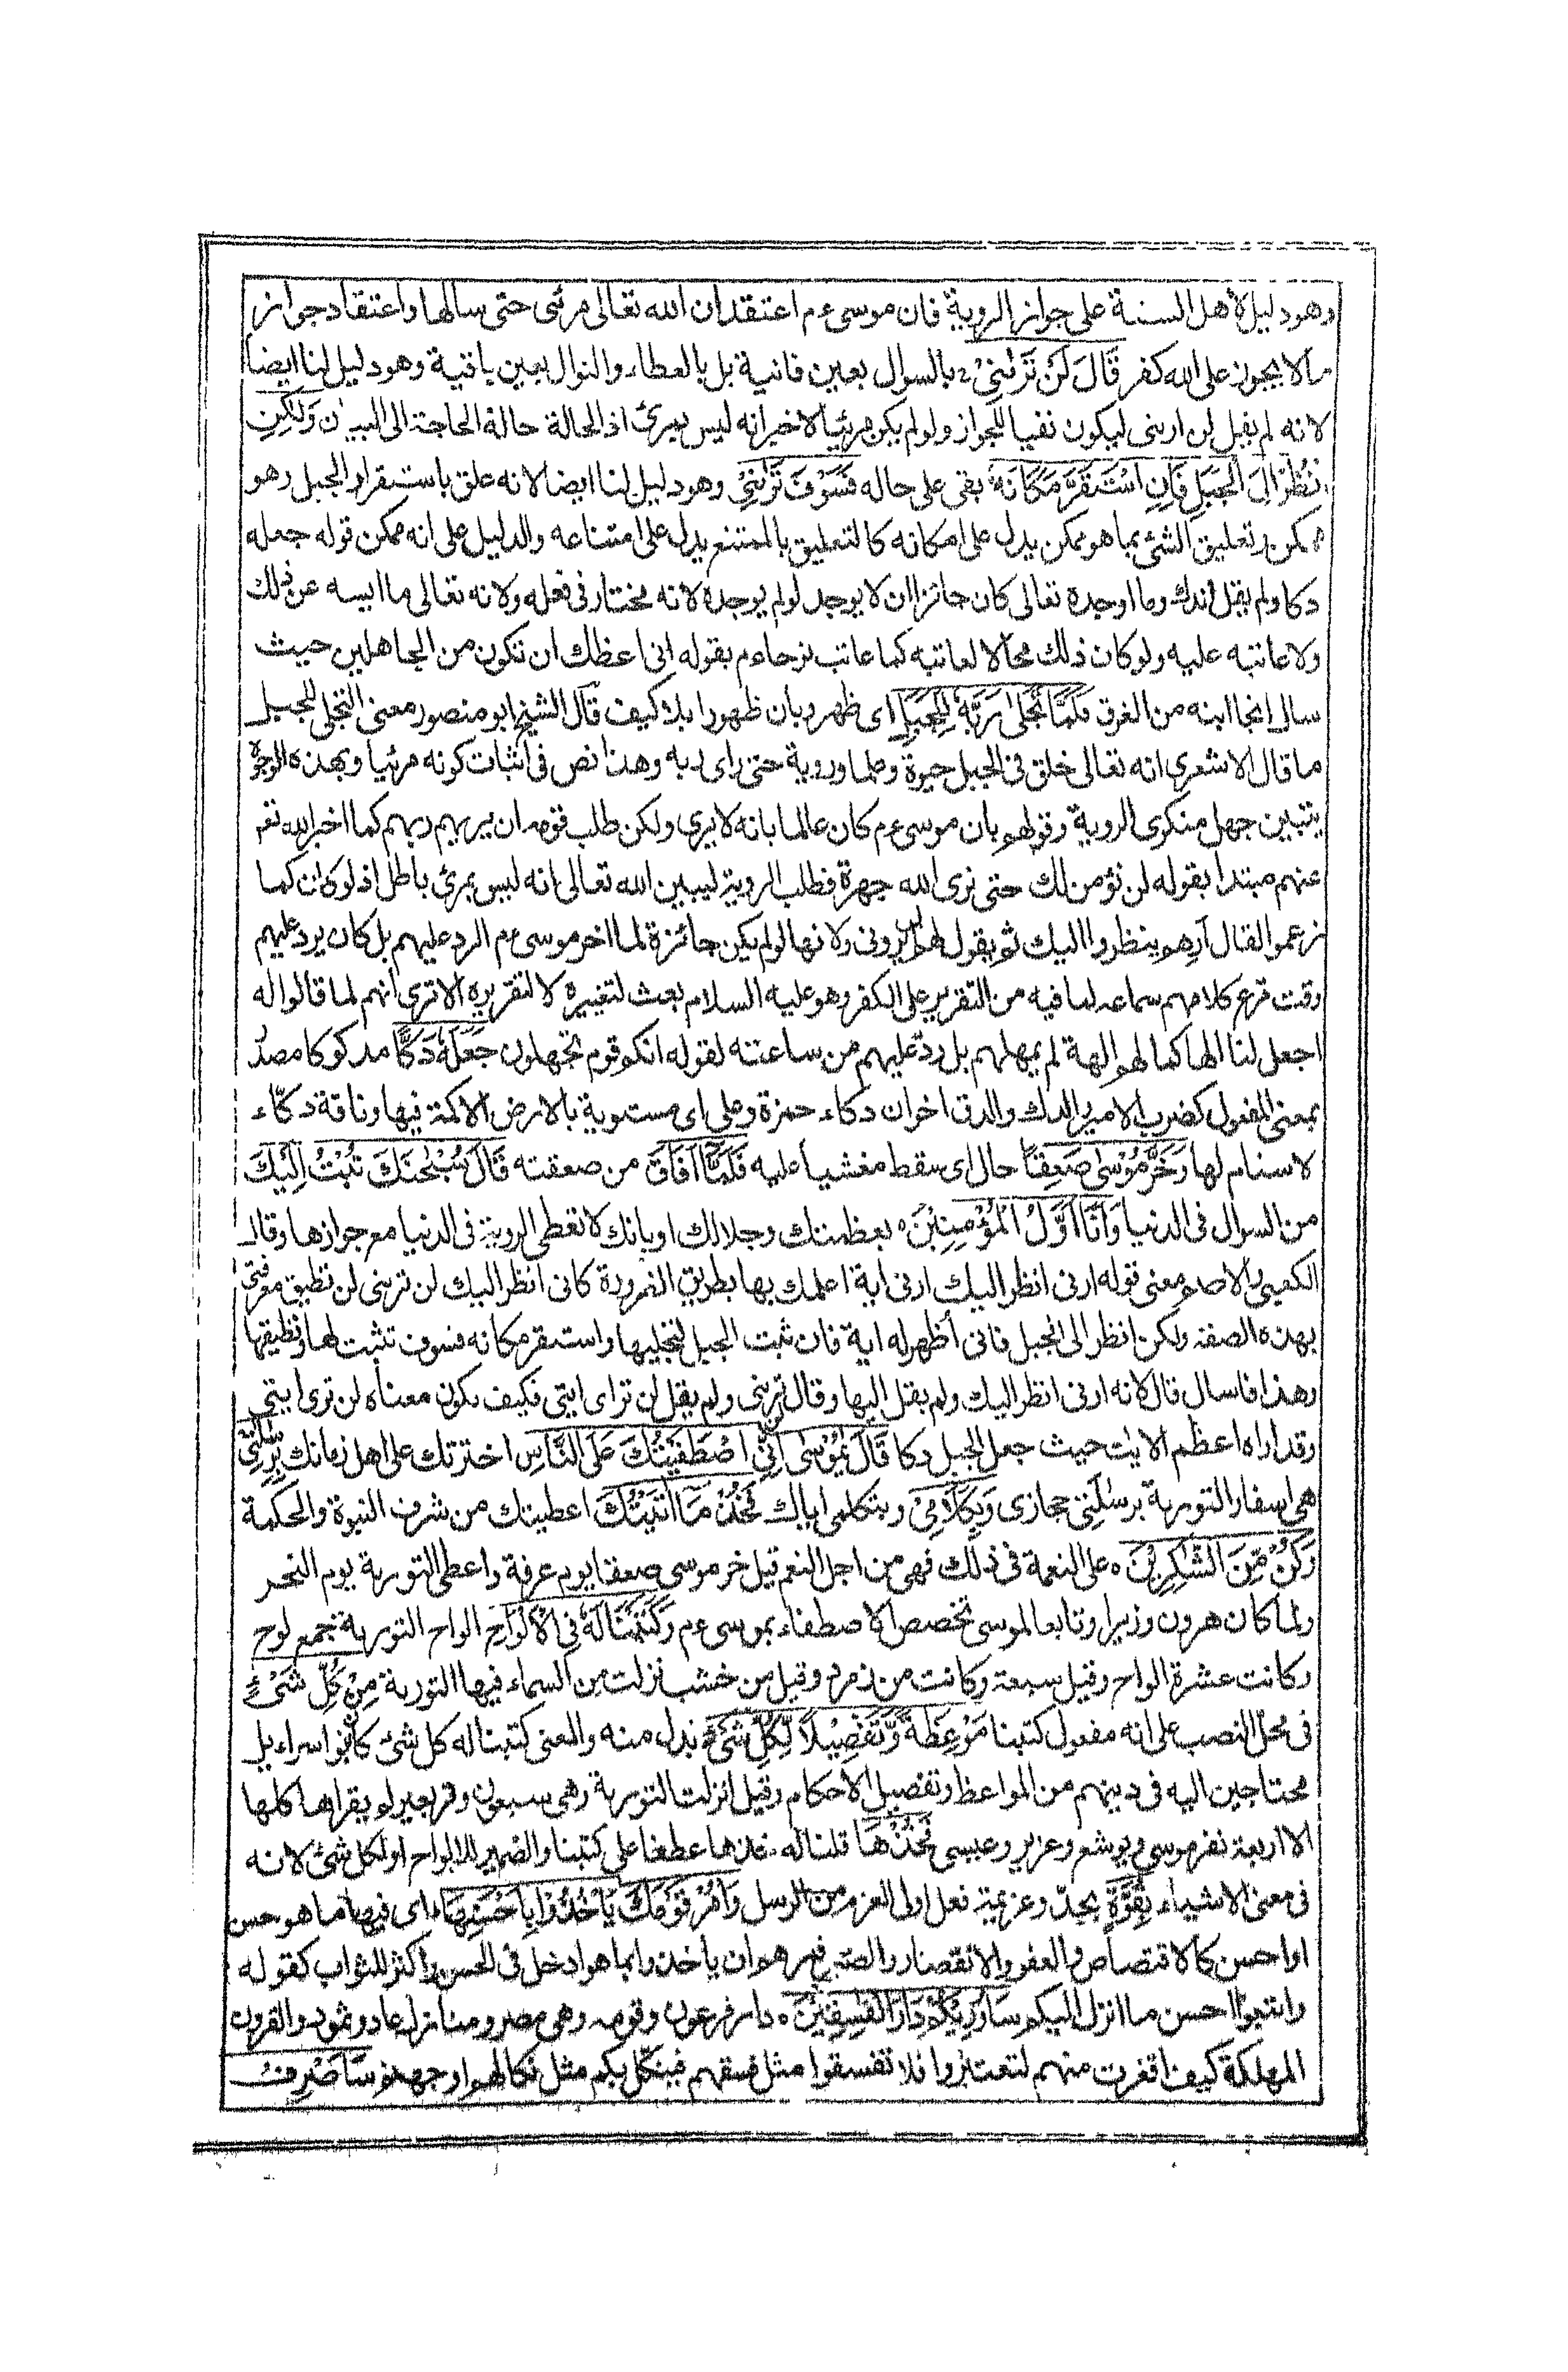 وهو دليل لأهل السنة على جواز الروية فان موسى ءم اعتقد ان الله تعالى مرئى حتى سالها واعتقاد جواز
مالا يجوز على الله كفر قَالَ لَنْ تَرٰىنِىْ بالسوال بعين فانية بل بالعطاء والنوال بعين باقية وهو دليل لنا ايضا
لانه لم يقل لن ارىنى ليكون نفيا للجواز ولو لم يكن مرئيا لاخبر انه ليس بمرئ اذ الحالة حالة الحاجة الى البيان وَلٰكِنِ
انْظُرْ اِلَى الْجَبَلِ فَاِنِ اسْتَقَرَّ مَكَانَهٗ بقى على حاله فَسَوْفَ تَرٰىنِىْ وهو دليل لنا ايضا لانه علق باستقرار الجبل وهو
ممكن وتعليق الشئ بما هو ممكن يدل على امكانه كالتعليق بالممتنع يدل على امتناعه والدليل على انه ممكن قوله جعله
دكا ولم يقل اندك وما اوجده تعالى كان جائزا ان لا يوجد لو لم يوجده لانه مختار فى فعله ولانه تعالى ما ايسه عن ذلك
ولا عاتبه عليه ولو كان ذلك محالا لعاتبه كما عاتب نوحا ءم بقوله انى اعظك ان تكون من الجاهلين حيث
سال انجا ابنه من الغرق فَلَمَّا تَجَلّٰى رَبُّهٗ لِلْجَبَلِ اى ظهر وبان ظهورا بلا كيف قال الشيخ ابو منصور معنى التجلى للجبل
ما قال الاشعرى انه تعالى خلق فى الجبل حيوة وعلما وروية حتى راى ربه وهذا نص فى اثبات كونه مرئيا وبهذه الوجوه
يتبين جهل منكرى الروية وقولهم بان موسى ءم كان عالما بانه لا يرى ولكن طلب قومه ان يريهم ربهم كما اخبر الله تعم
عنهم مبتدا بقوله لن نؤمن لك حتى نرى الله جهرة فطلب الروية ليبين الله تعالى انه ليس بمرئ باطل اذ لو كان كما
زعموا لقال ارهم ينظروا اليك ثم يقول له لن يرونى ولانها لو لم يكن جائزة لما اخر موسى ءم الرد عليهم بل كان يرد عليهم
وقت قرع كلامهم سماعه لما فيه من التقرير على الكفر وهو عليه السلام بعث لتغييره لا لتقريره الا ترى انهم لما قالوا له
اجعل لنا الها كما لهم الهة لم يمهلهم بل رد عليهم من ساعته لقوله انكم قوم تجهلون جَعَلَهٗ دَكًّا مدكوكا مصدر
بمعنى المفعول كضرب الامير الدك والدق اخوان دكاء حمزة وعلى اى مستوية بالارض لا اكمة فيها وناقة دكّاء
لا سنام لها وَّخَرَّ مُوْسٰى صَعِقًا حال اى سقط مغشيا عليه فَلَمَّآ اَفَاقَ من صعقته قَالَ سُبْحٰنَكَ تُبْتُ اِلَيْكَ
من السوال فى الدنيا وَاَنَا اَوَّلُ الْمُؤْمِنِيْنَ ۝ بعظمتك وجلالك او بانك لا تعطى الروية فى الدنيا مع جوازها وقال
الكعبى والاصم معنى قوله ارنى انظر اليك ارنى اية اعلمك بها بطريق الضرورة كانى انظر اليك لن ترىنى لن تطيق معرفتى
بهذه الصفة ولكن انظر الى الجبل فانى أظهر له اية فان ثبت الجبل لتجليها واستقر مكانه فسوف تثبت لها وتطيقها
وهذا فاسد لانه قال ارنى انظر اليك ولم يقل اليها وقال ترىنى ولم يقل لن ترى ايتى فكيف يكون معناه لن ترى ايتى
وقد اراه اعظم الايٰت حيث جعل الجبل دكا قَالَ يٰمُوْسٰى اِنِّى اصْطَفَيْتُكَ عَلَى النَّاسِ اخترتك على اهل زمانك بِرِسٰلٰتِىْ
هى اسفار التورية برسٰلَتى حجازى وَبِكَلَامِىْ وبتكلمى اياك فَخُذْ مَآ اٰتَيْتُكَ اعطيتك من شرف النبوة والحكمة
وَكُنْ مِّنَ الشّٰكِرِيْنَ ۝ على النعمة فى ذلك فهى من اجل النعم قيل خر موسى صعقا يوم عرفة واعطى التورية يوم النحر
ولما كان هرون وزيرا وتابعا لموسى تخصص الاصطفاء بموسى ءم وَكَتَبْنَا لَهٗ فِى الْاَلْوَاحِ الواح التورية جمع لوح
وكانت عشرة الواح وقيل سبعة وكانت من زمرد وقيل من خشب نزلت من السماء فيها التورية مِنْ كُلِّ شَىْءٍ
فى محل النصب على انه مفعول كتبنا مَوْعِظَةً وَّتَفْصِيْلًا لِّكُلِّ شَىْءٍ بدل منه والمعنى كتبنا له كل شئ كانوا بنوا اسراءيل
محتاجين اليه فى دينهم من المواعظ وتفصيل الاحكام وقيل انزلت التورية وهى سبعون وقر بعير لم يقراها كلها
الا اربعة نفر موسى ويوشع وعزير وعيسى فَخُذْهَا قلنا له خذها عطفا على كتبنا والضمير للالواح او لكل شئ لانه
فى معنى الاشياء بِقُوَّةٍ بجدّ وعزيمة فعل اولى العزم من الرسل وَّاْمُرْ قَوْمَكَ يَاْخُذُوْا بِاَحْسَنِهَا اى فيها ما هو حسن
او احسن كالاقتصاص والعفو والانتصار والصبر فمرهم ان ياخذوا بما هو ادخل فى الحسن واكثر للثواب كقوله
واتبعوا احسن ما انزل اليكم سَاُورِيْكُمْ دَارَ الْفٰسِقِيْنَ ۝ دار فرعون وقومه وهى مصر ومنازل عاد وثمود والقرون
المهلكة كيف اقفرت منهم لتعتبروا فلا تفسقوا مثل فسقهم فينكّل بكم مثل نكالهم او جهنم سَاَصْرِفُ